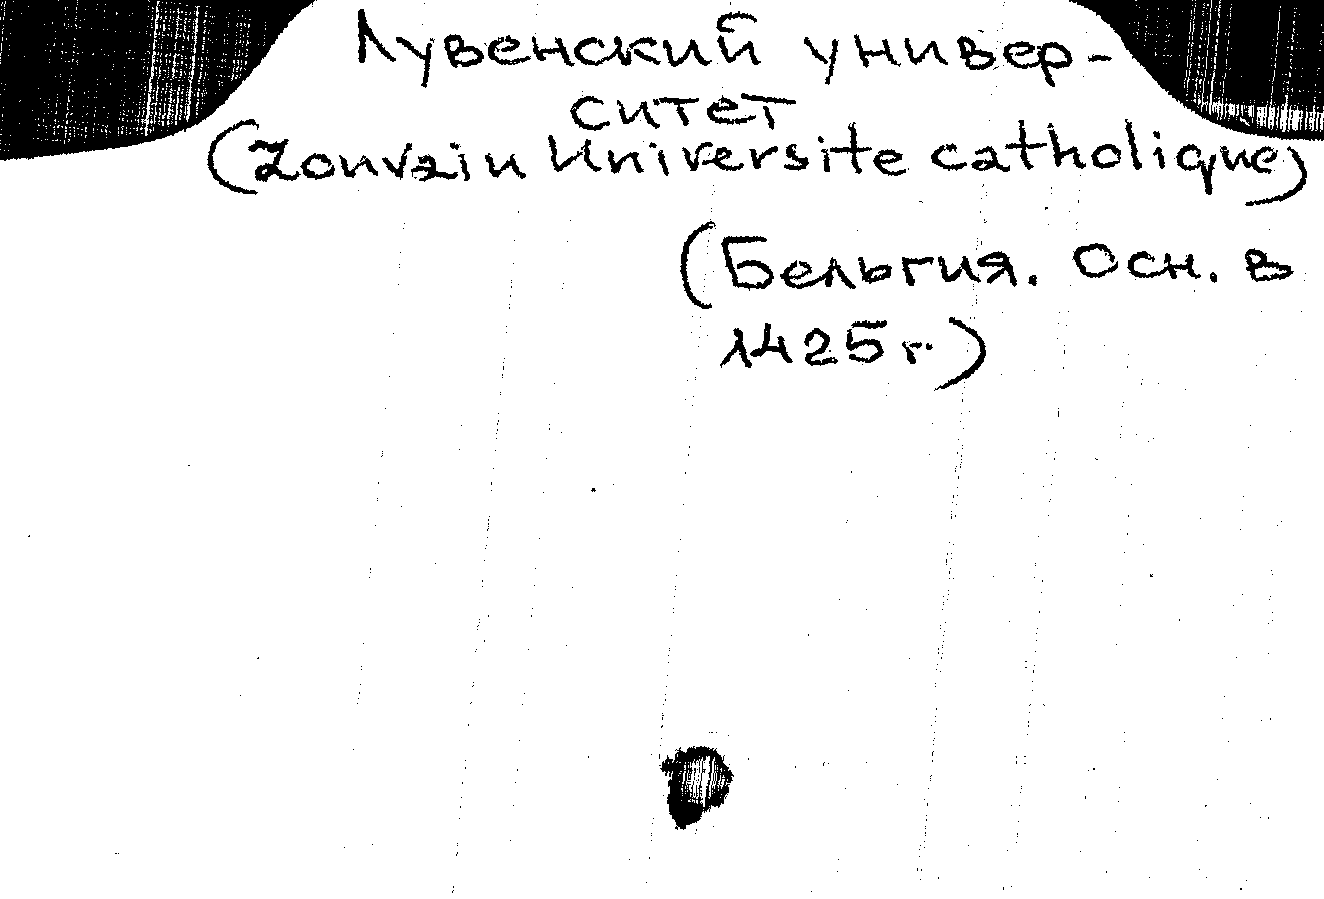 Лувенский универ-
ситет
(Louvain Universite catholique)
(Бельгия. Осн. в
1425 г.)